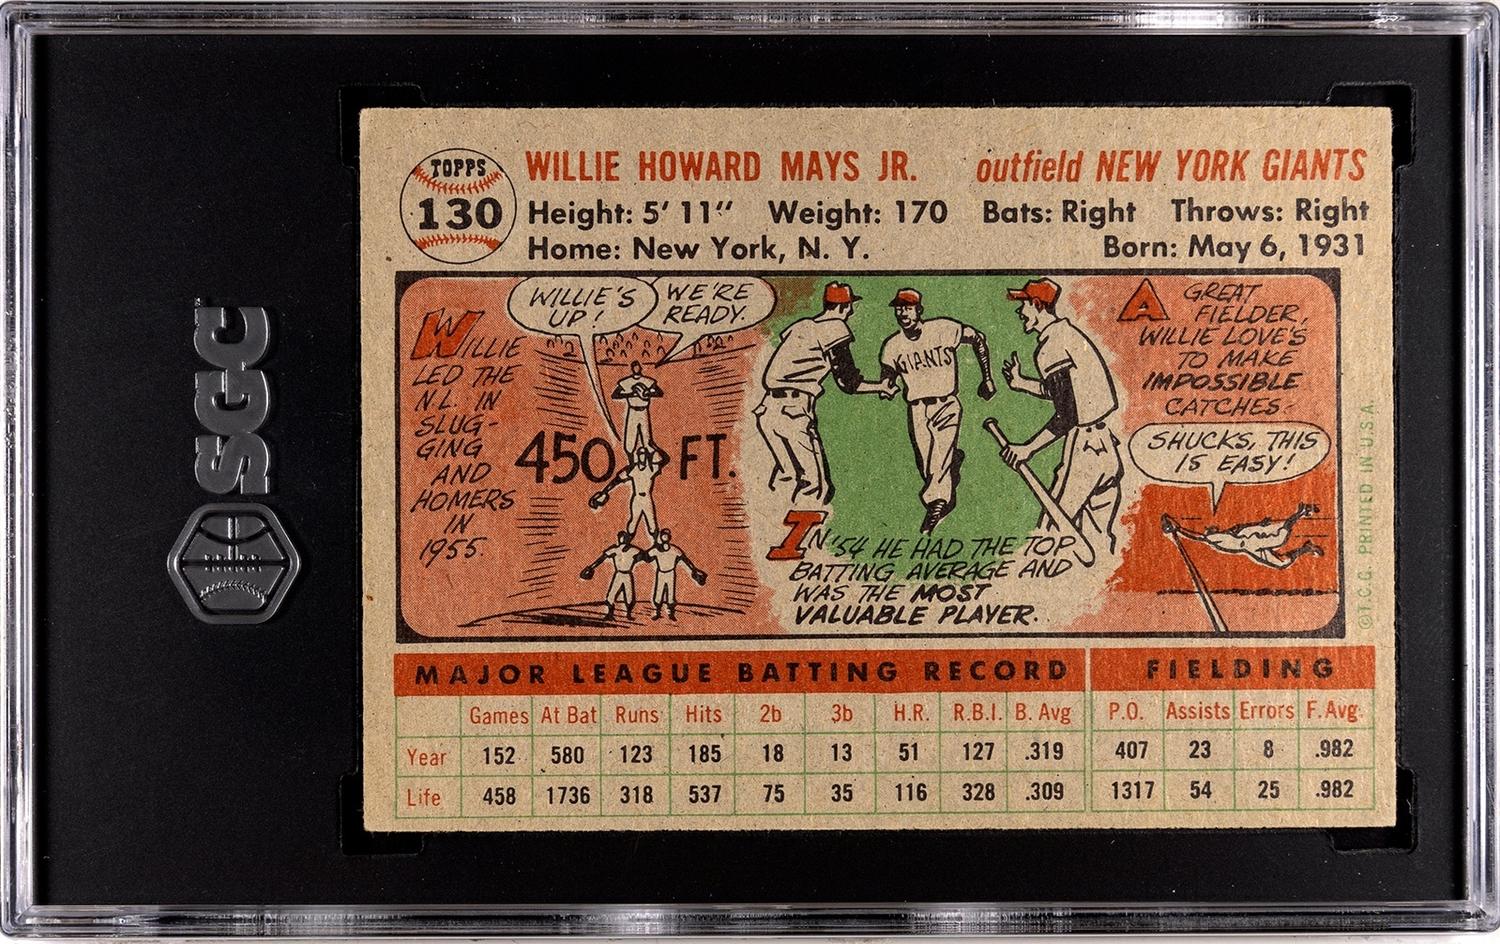 TOPPS
130
WILLIE HOWARD MAYS JR. outfield NEW YORK GIANTS
Height: 5' 11" Weight: 170 Bats: Right Throws: Right
Home: New York, N. Y. Born: May 6, 1931
WILLIE
LED THE
N.L. IN
SLUG-
GING
AND
HOMERS
IN
1955.
WILLIE'S
UP!
WE'RE
READY.
450 FT.
GIANTS
IN '54 HE HAD THE TOP
BATTING AVERAGE AND
WAS THE MOST
VALUABLE PLAYER.
A GREAT
FIELDER,
WILLIE LOVE'S
TO MAKE
IMPOSSIBLE
CATCHES-
SHUCKS, THIS
IS EASY!
©T.C.C. PRINTED IN U.S.A.
MAJOR LEAGUE BATTING RECORD FIELDING
Games At Bat Runs Hits 2b 3b H.R. R.B.I. B. Avg P.O. Assists Errors F. Avg.
Year 152 580 123 185 18 13 51 127 .319 407 23 8 .982
Life 458 1736 318 537 75 35 116 328 .309 1317 54 25 .982
SGC